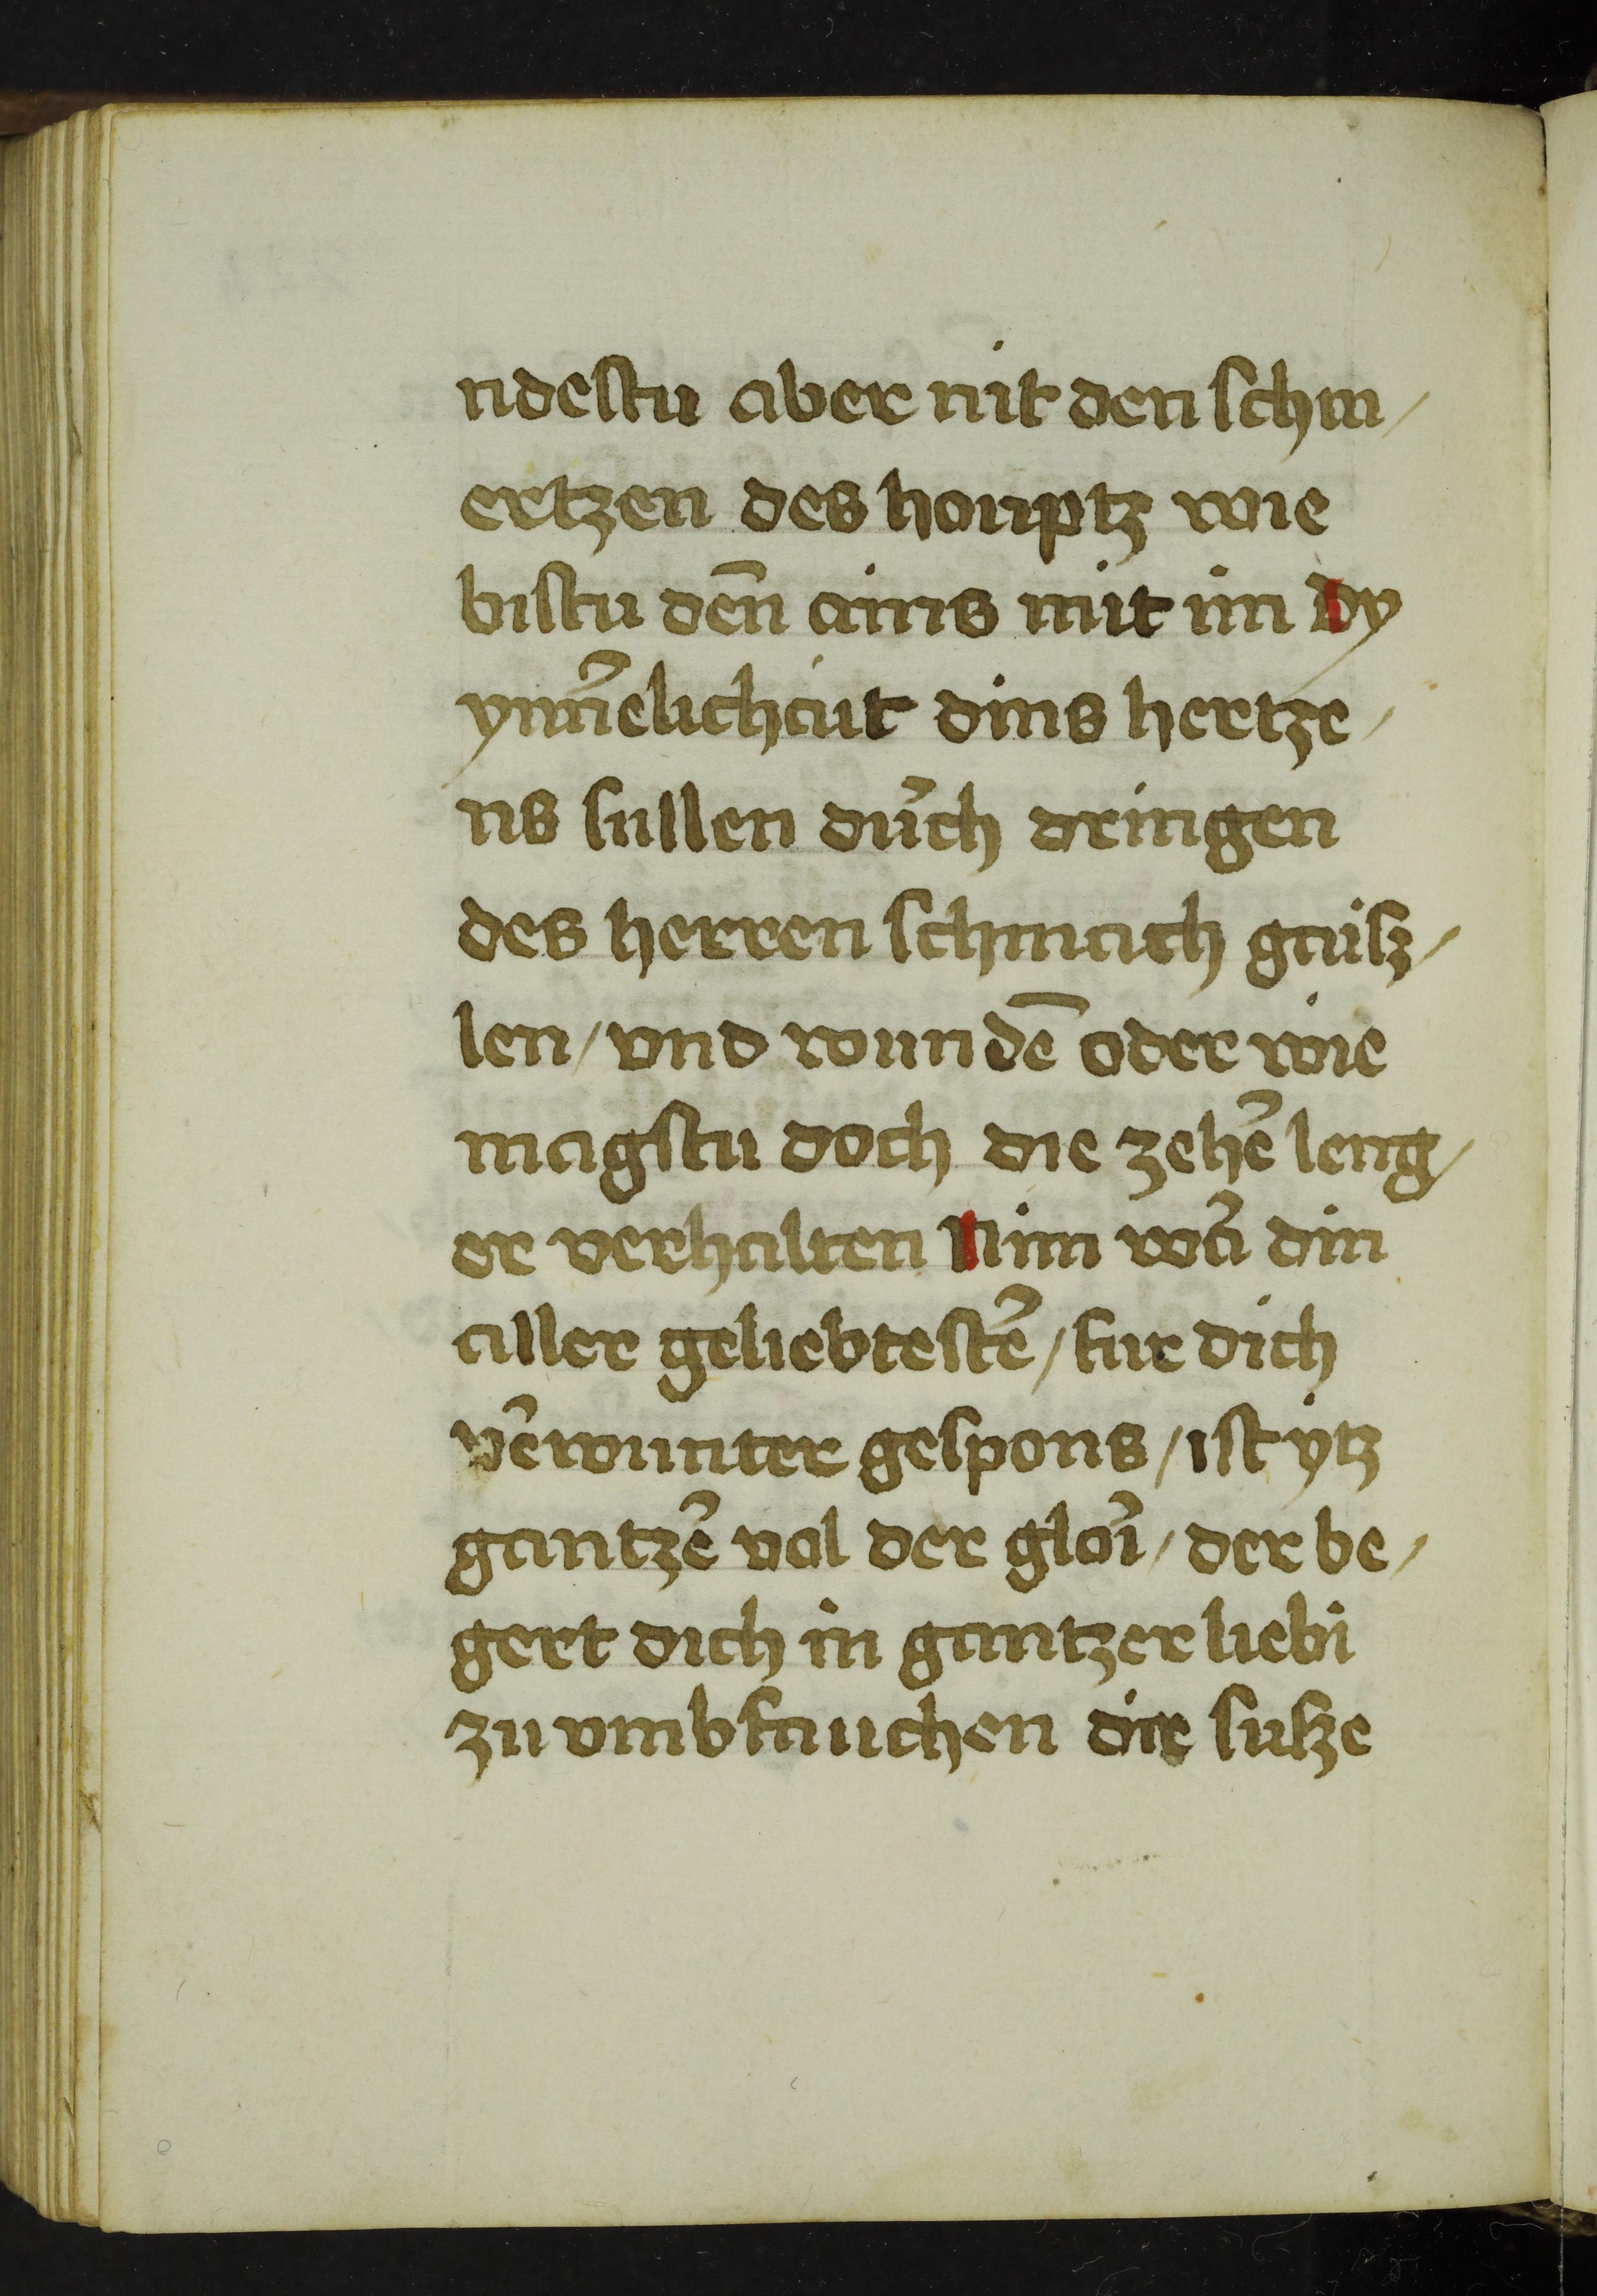 ndestu aber nit den schm/
ertzen des houptz wie
bistu deñ ains mit im Dy
ynn̄elichait dins hertze/
ns sullen dur̃ch dringen
des herren schmach gaisz/
len / vnd wundē oder wie
magstu doch die zehẽ leng/
er verhalten Nim war̃ din
aller geliebtestẽ / fur dich
vẽwunter gespons / ist ytz
gantzẽ vol der glorĩ / der be/
gert dich in gantzer liebi
zu vmbfauchen die susze